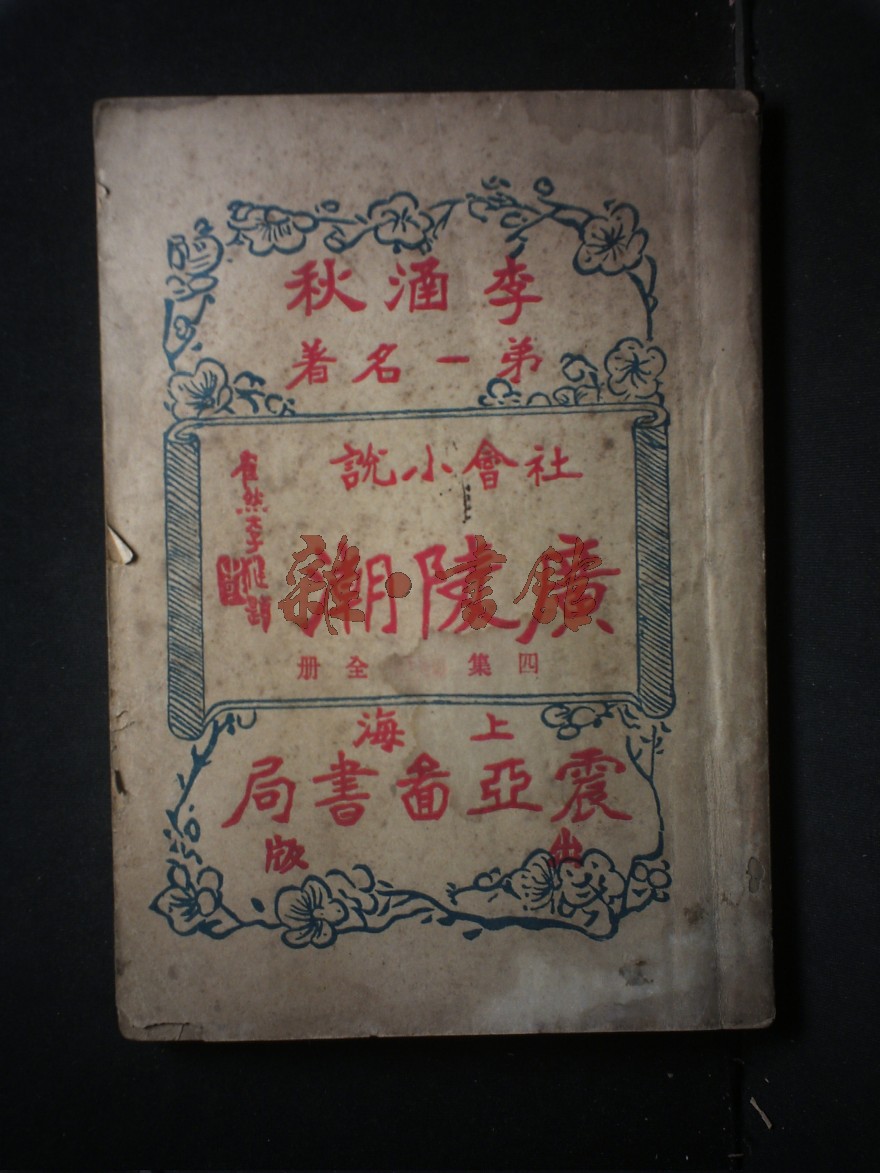 李涵秋
弟一名著
社會小說
廣陵潮
四集 全册
上海
震亞啚書局
出版
雜·書館